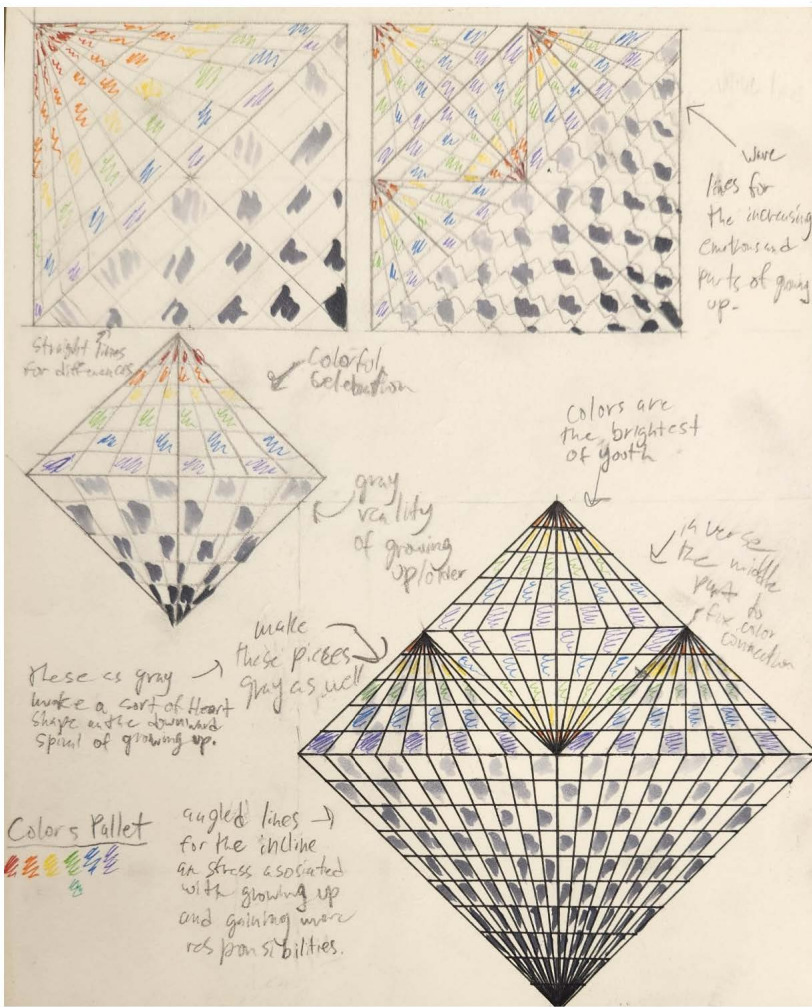 wave
lines for
the increasing
emotions and
parts of growing
up.
Straight lines
for differences
Colorful
Celebration
gray
reality
of growing
up/older
Colors are
the brightest
of youth
inverse
the middle
part to
fix color
connection
make
these pieces
gray as well
these as gray
make a sort of Heart
shape in the downward
spiral of growing up.
Colors Pallet
angled lines
for the incline
an stress asosiated
with growing up
and gaining more
responsibilities.